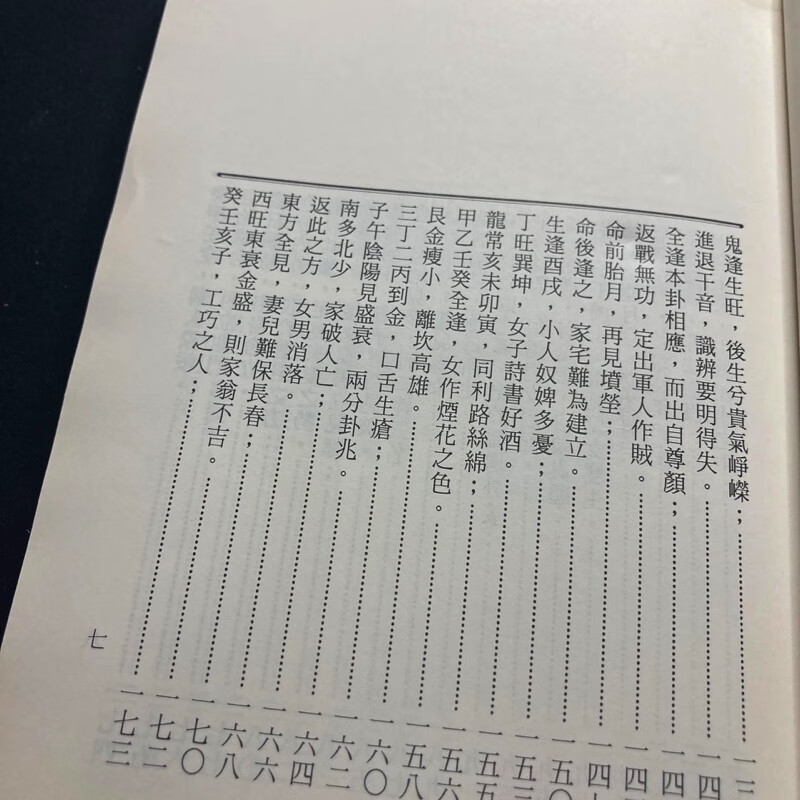 鬼逢生旺，後生兮貴氣崢嶸；……一三
進退干音，識辨要明得失。……一四
全逢本卦相應，而出自尊顏；……一四
返戰無功，定出軍人作賊。……一四
命前胎月，再見墳塋；……一四
命後逢之，家宅難為建立。……一五〇
生逢酉戌，小人奴婢多憂；……一五三
丁旺巽坤，女子詩書好酒。……一五五
龍常亥未卯寅，同利路絲綿；……一五六
甲乙壬癸全逢，女作煙花之色。……一五八
艮金瘦小，離坎高雄。……一六〇
三丁二丙到金，口舌生瘡；……一六二
子午陰陽見盛衰，兩分卦兆。……一六四
南多北少，家破人亡；……一六六
返此之方，女男消落。……一六八
東方全見，妻兒難保長春；……一七〇
西旺東衰金盛，則家翁不吉。……一七二
癸壬亥子，工巧之人；……一七三
七